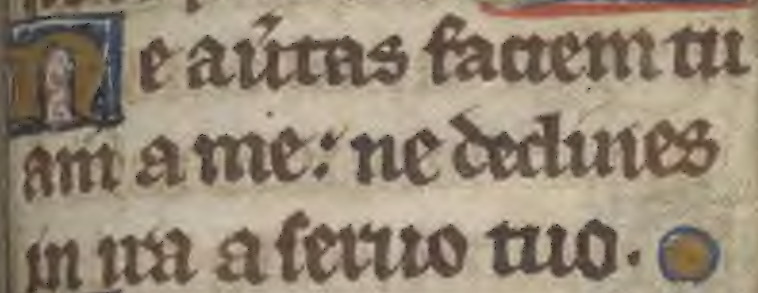 Ne aũtas faciem tu
am a me: ne declines
in ira a seruo tuo.